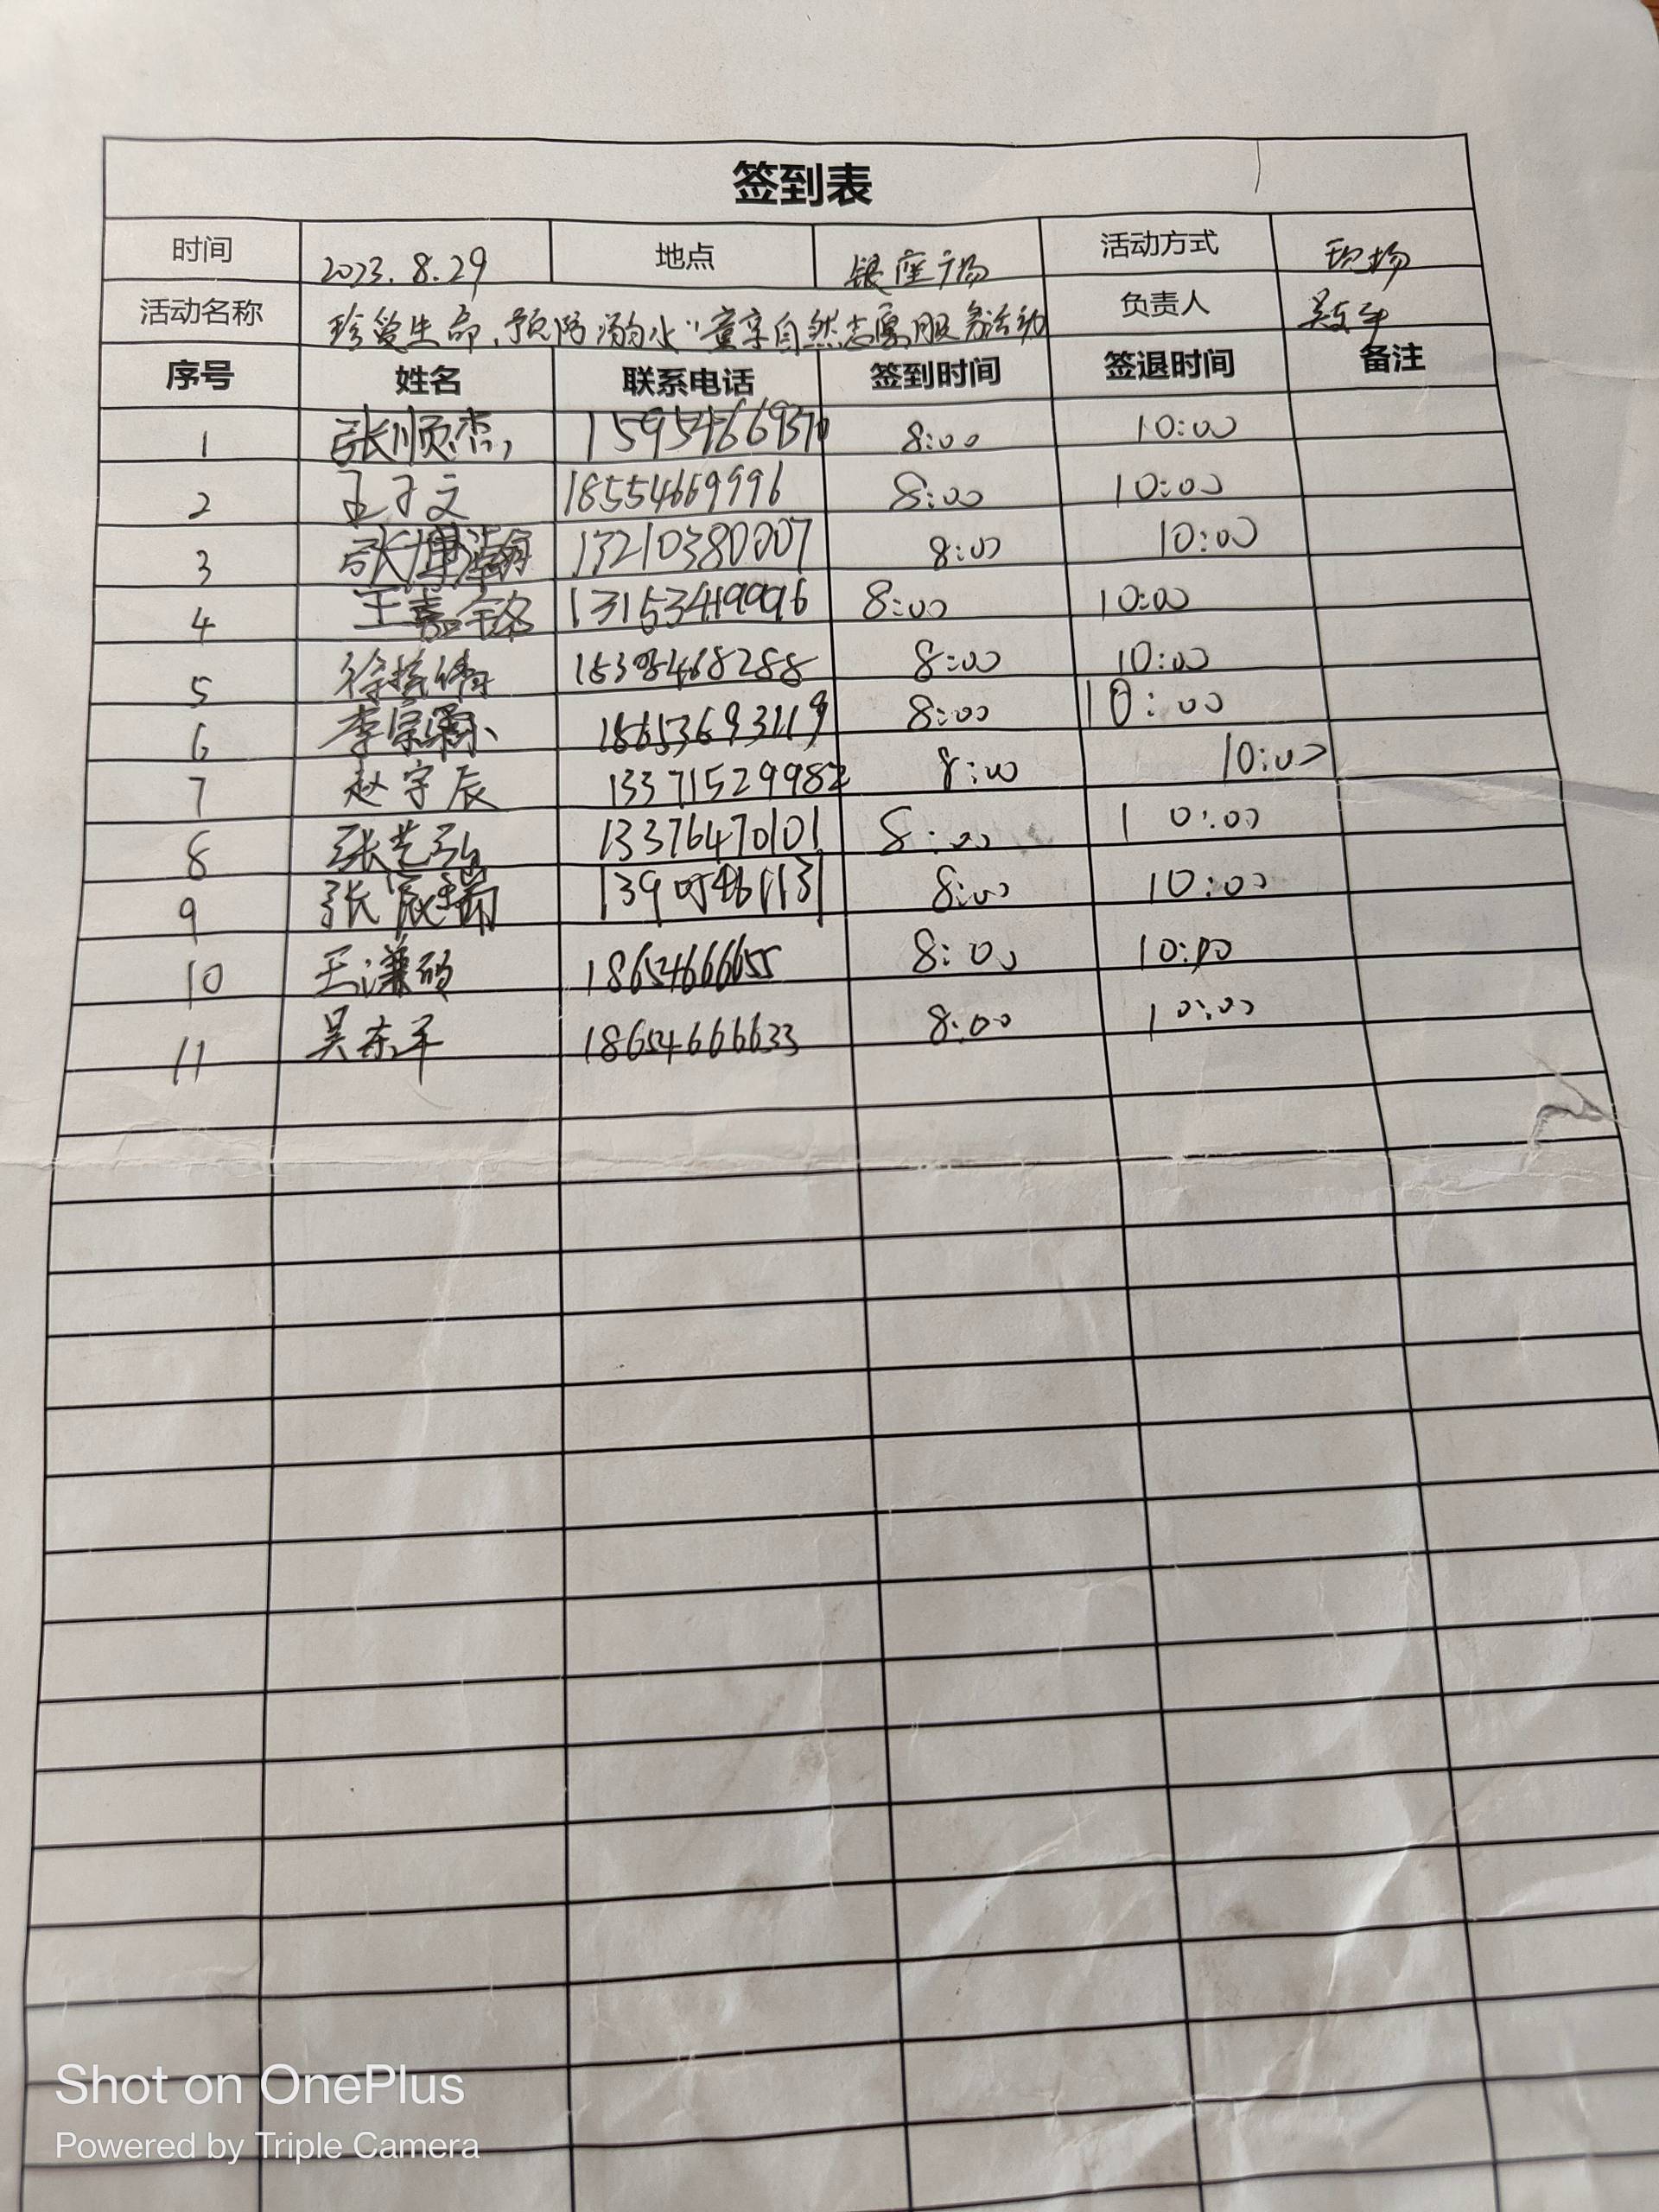 签到表
时间 2023.8.29 地点 银座广场 活动方式 现场
活动名称 珍爱生命、预防溺水"童享自然志愿服务活动 负责人 吴东军
序号 姓名 联系电话 签到时间 签退时间 备注
1 张顺杰 15954669370 8:00 10:00
2 王子文 18554669996 8:00 10:00
3 张博瀚 13210380007 8:00 10:00
4 王嘉铭 13153419996 8:00 10:00
5 8:00 10:00
6 李宗霖 18653693119 8:00 10:00
7 赵宇辰 13371529982 8:00 10:00
8 张艺弘 13376470101 8:00 10:00
9 张宸瑞 8:00 10:00
10 18654666655 8:00 10:00
11 吴东军 18654666633 8:00 10:00
Shot on OnePlus
Powered by Triple Camera